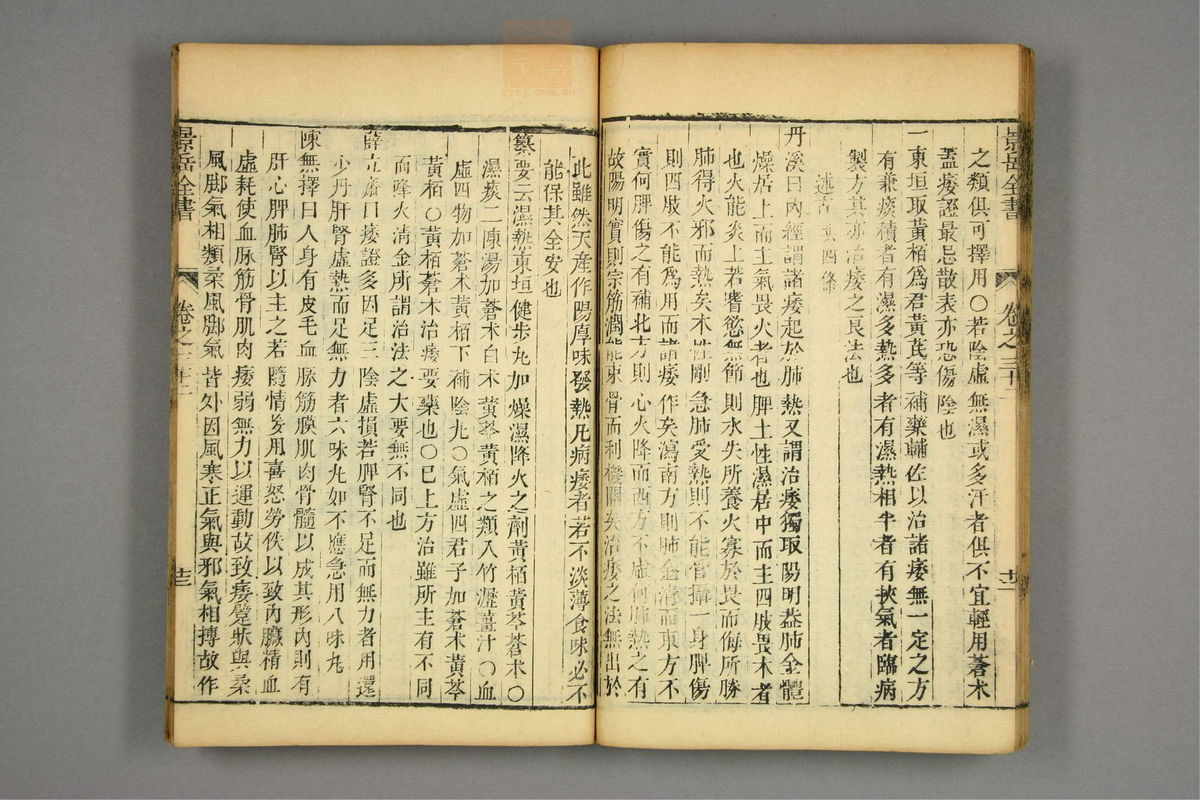 景岳全書
卷之三十二
之類俱可擇用○若陰虛無濕或多汗者俱不宜輕用蒼术
蓋痿證最忌散表亦恐傷陰也
一東垣取黃栢爲君黃芪等補藥輔佐以治諸痿無一定之方
有兼痰積者有濕多熱多者有濕熱相半者有挾氣者臨病
製方其亦治痿之良法也
述古共四條
丹溪曰內經謂諸痿起於肺熱又謂治痿獨取陽明蓋肺金體
燥居上而主氣畏火者也脾土性濕居中而主四肢畏木者
也火能炎上若嗜慾無節則水失所養火寡於畏而侮所勝
肺得火邪而熱矣木性剛急肺受熱則不能管攝一身脾傷
則四肢不能爲用而諸痿作矣瀉南方則肺金淸而東方不
實何脾傷之有補北方則心火降而西方不虛何肺熱之有
故陽明實則宗筋潤能束骨而利機關矣治痿之法無出於
此雖然天產作陽厚味發熱凡病痿者若不淡薄食味必不
能保其全安也
纂要云濕熱東垣健步丸加燥濕降火之劑黃栢黃芩蒼术○
濕痰二陳湯加蒼术白术黃芩黃栢之類入竹瀝薑汁○血
虛四物加蒼术黃栢下補陰丸○氣虛四君子加蒼术黃芩
黃栢○黃栢蒼术治痿要藥也○已上方治雖所主有不同
而降火淸金所謂治法之大要無不同也
薛立齋曰痿證多因足三陰虛損若脾腎不足而無力者用還
少丹肝腎虛熱而足無力者六味丸如不應急用八味丸
陳無擇曰人身有皮毛血脉筋膜肌肉骨髓以成其形內則有
肝心脾肺腎以主之若隨情妄用喜怒勞佚以致內臟精血
虛耗使血脉筋骨肌肉痿弱無力以運動故致痿躄狀與柔
風脚氣相類柔風脚氣皆外因風寒正氣與邪氣相搏故作
景岳全書
卷之三十二